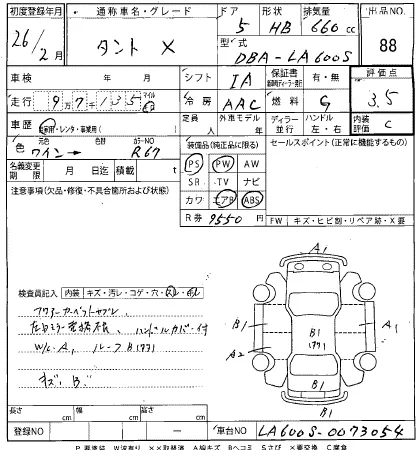 初度登録年月 通称車名・グレード ドア 形状 排気量 出品NO.
26/2月 タント X 5 HB 660cc 88
型式 DBA-LA600S
車検 年 月 シフト IA 保証書 有・無 評価点
走行 9万7千135 マイル km 冷房 AAC 燃料 G 3.5
車歴 自家用・レンタ・事業用( ) 定員 人 外車モデル 年 ディーラー 並行 ハンドル 左・右 内装評価 C
色 元色 色替 カラーNO
ワイン → R67
装備品(純正品に限る) セールスポイント(正常に機能するもの)
PS PW AW
名義変更期限 月 日迄 積載 t SR TV ナビ
注意事項(欠品・修復・不具合箇所および状態) カワ エアB ABS
R券 9550円 FW キズ・ヒビ割・リペア跡・X要
A1
検査員記入 内装 キズ・汚レ・コゲ・穴・スレ・
B1 B1 1771 A1
A2
ハンドルカバー付
W/C A, ルーフB1771
キズ B
B1
B1
長さ cm 幅 cm 高さ cm
登録NO 車台NO LA600S-0073054
P 要塗装 W波有り ××取替済 A線キズ Bヘコミ Sさび ×要交換 C腐食